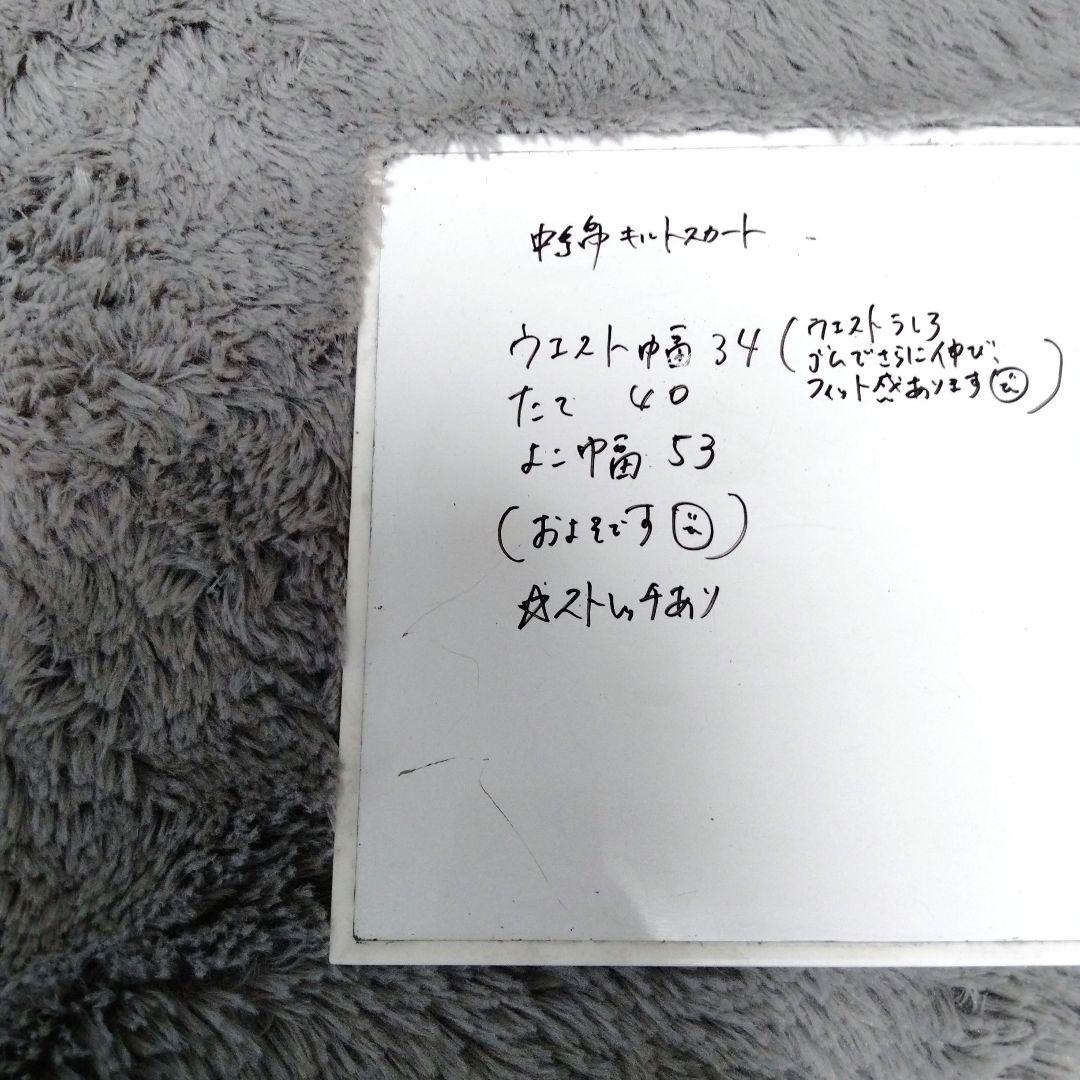 中綿キルトスカート
ウエスト幅 34(ウエストうしろ
ゴムでさらに伸び、
フィット感あります)
たて 40
よこ幅 53
(およそです)
☆ストレッチあり